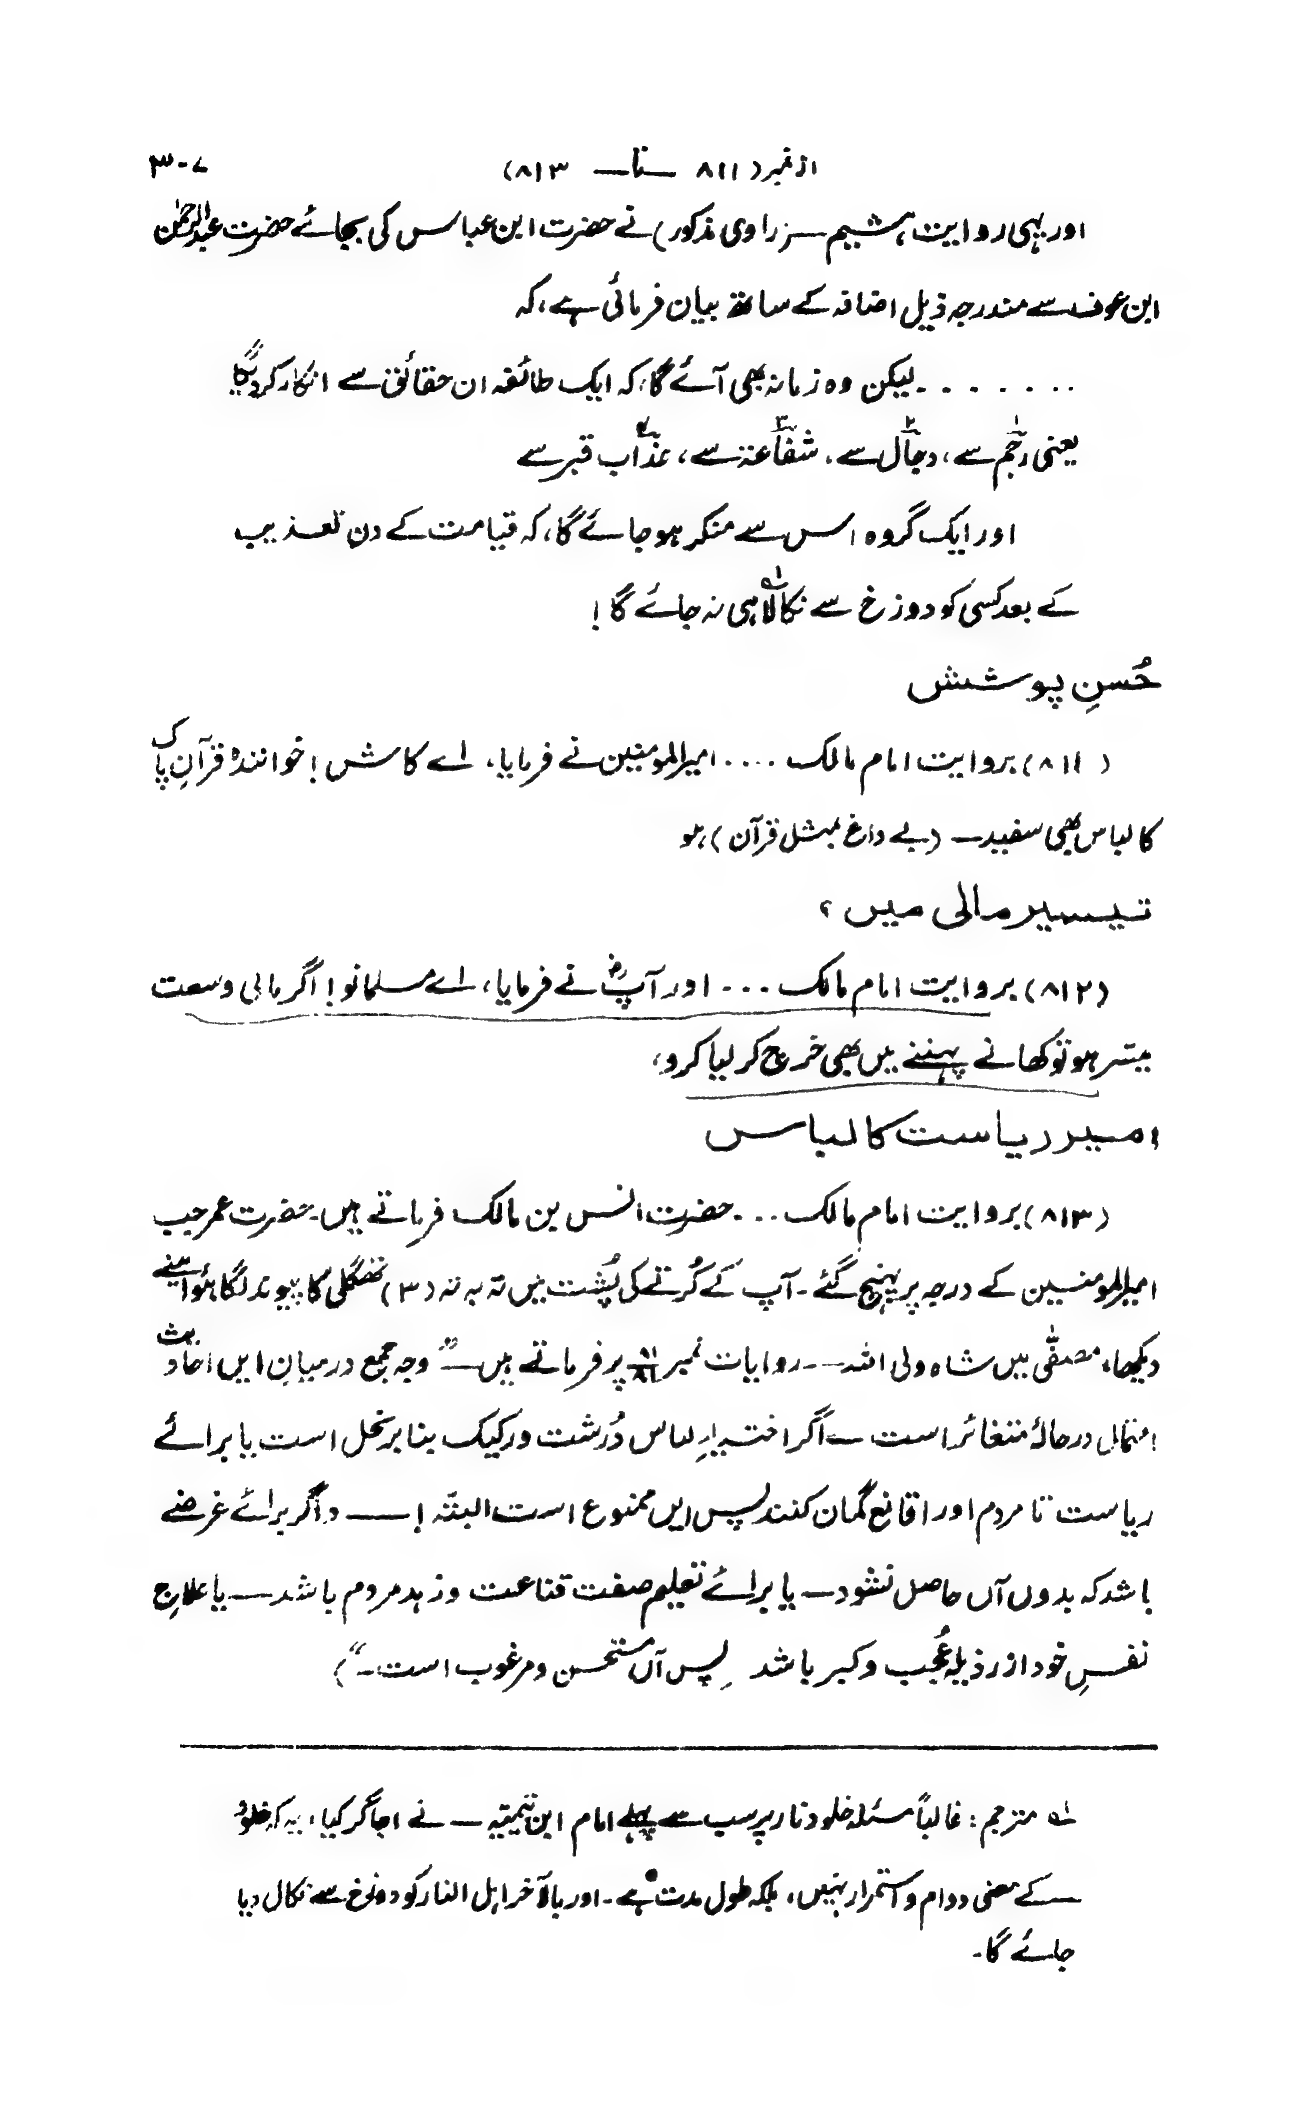 از نمبر (۸۱۱ ــ تا ــ ۸۱۳) ۳۰۷
اور یہی روایت ہشیم ــــ (راوی مذکور) نے حضرت ابن عباس کی بجائے حضرت عبدالرحمٰن
ابن عوف سے مندرجہ ذیل اضافہ کے ساتھ بیان فرمائی ہے، کہ
۔ ۔ ۔ ۔ ۔ ۔ ۔ لیکن وہ زمانہ بھی آئے گا، کہ ایک طائفہ ان حقائق سے انکار کر دیگا
یعنی رجم۱ سے، دجال۲ سے، شفاعت۳ سے، عذاب۴ قبر سے
اور ایک گروہ اس سے منکر ہو جائے گا، کہ قیامت کے دن تعذیب
کے بعد کسی کو دوزخ سے نکالا۱؎ ہی نہ جائے گا!
حُسنِ پوشش
(۸۱۱) بروایت امام مالک .... امیرالمومنین نے فرمایا، اے کاش! خوانندۂ قرآنِ پاک
کا لباس بھی سفید ــ (بے داغ بمثل قرآن) ہو
تیسیر مالی میں ؟
(۸۱۲) بروایت امام مالک ... اور آپؓ نے فرمایا، اے مسلمانو! اگر مالی وسعت
میسّر ہو تو کھانے پہننے میں بھی خرچ کر لیا کرو،
امیر ریاست کا لباس
(۸۱۳) بروایت امام مالک ... حضرت انس بن مالک فرماتے ہیں۔ حضرت عمر جب
امیرالمومنین کے درجہ پر پہنچ گئے۔ آپ کے کُرتے کی پُشت میں تہ بہ تہ (۳) تھگلی کا پیوند لگا ہوا میں نے
دیکھا، مصفّٰی میں شاہ ولی اللہ ــ روایات نمبر پر فرماتے ہیں ــ " وجہ جمع درمیانِ ایں احادیث
در حالۂ متغائر است ــ اگر اختیارِ لباس دُرشت و رکیک بنا بر بخل است یا برائے
ریاست تا مردم اورا قانع گمان کنند پس ایں ممنوع است البتّہ! ــــ و اگر برائے غرضے
باشد کہ بدوں آں حاصل نشود ــ یا برائے تعلیم صفت قناعت و زہد مردم باشد ــ یا علاجِ
نفسِ خود از رذیلہ عُجب و کبر باشد پس آں مستحسن و مرغوب است۔")
۱؎ مترجم: غالباً مسئلہ خلود نار پر سب سے پہلے امام ابن تیمیّہ ــ نے اجاگر کیا، یہ کہ خلود
ــ کے معنی دوام و استمرار نہیں، بلکہ طول مدت ہے۔ اور بالآخر اہل النار کو دوزخ سے نکال دیا
جائے گا۔